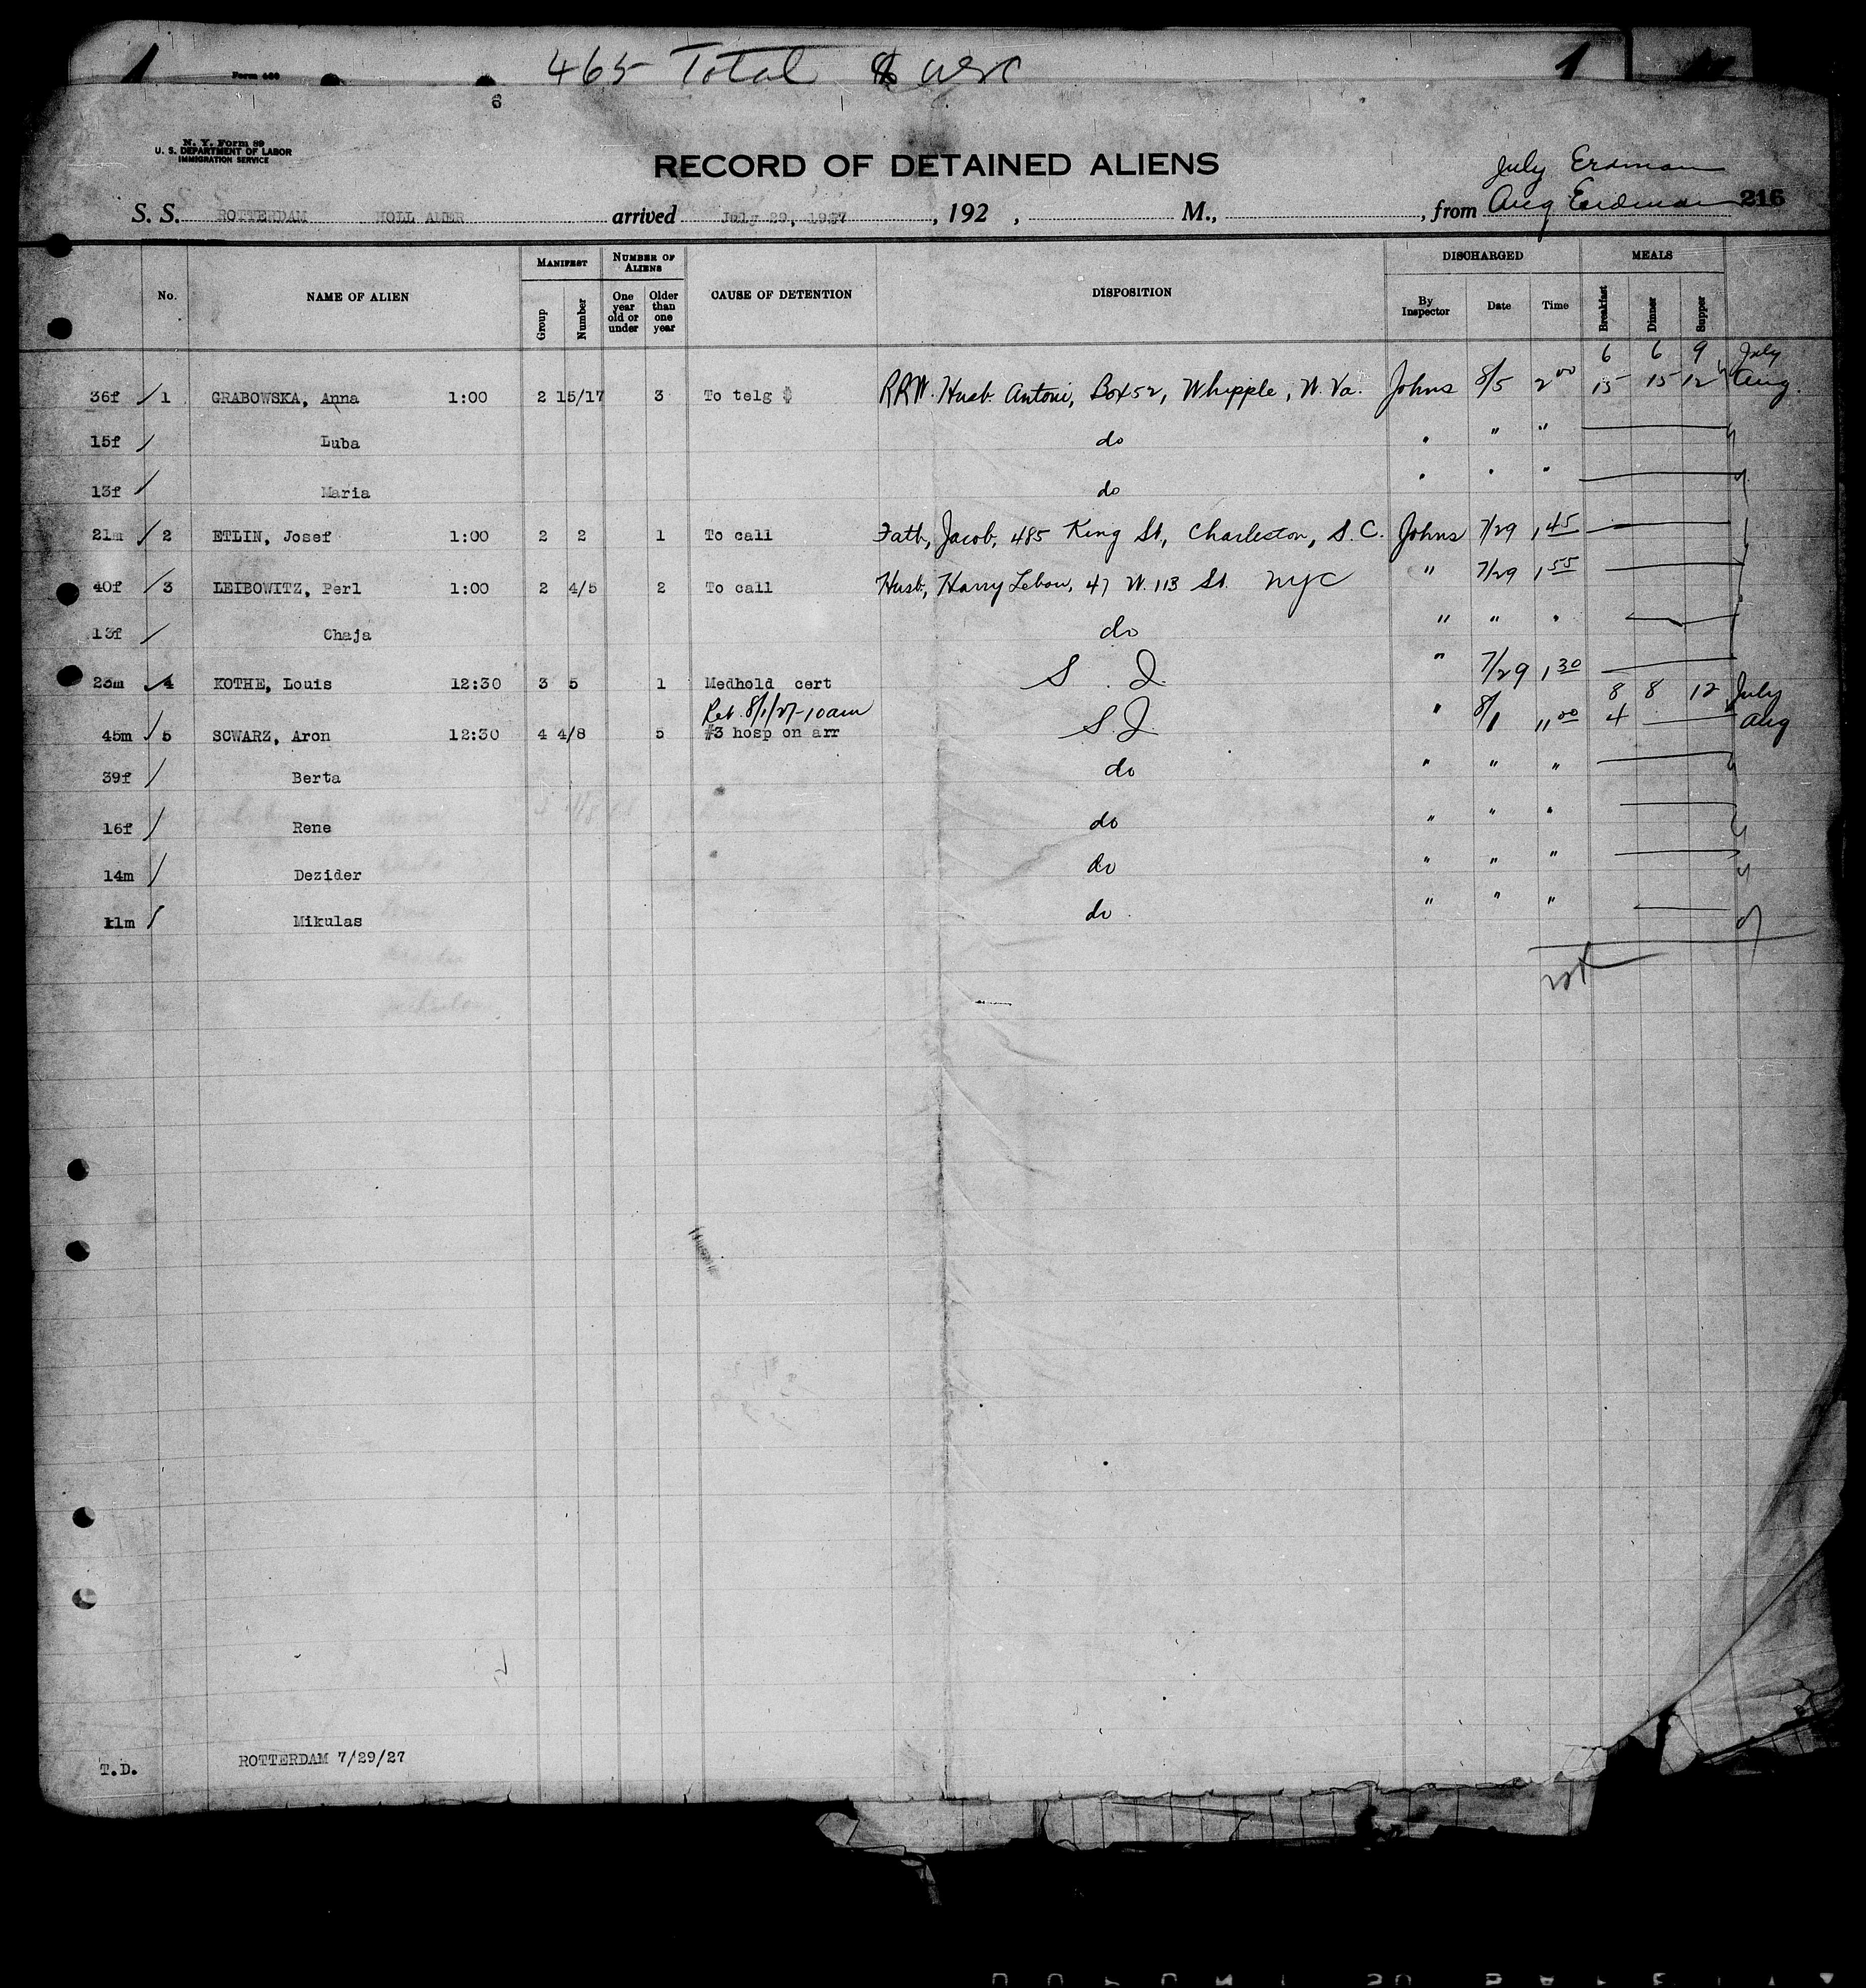 465 Total
1 1
Form 460
6
N. Y. Form 89
U. S. DEPARTMENT OF LABOR
IMMIGRATION SERVICE
RECORD OF DETAINED ALIENS
July Erdman
S. S. ROTTERDAM HOLL AMER arrived July 29, 1927, 192 , M., , from Aug Erdman 216
No. NAME OF ALIEN MANIFEST Group Number NUMBER OF ALIENS One year old or under Older than one year CAUSE OF DETENTION DISPOSITION DISCHARGED By Inspector Date Time MEALS Breakfast Dinner Supper
6 6 9 July
36f / 1 GRABOWSKA, Anna 1:00 2 15/17 3 To telg $ RRW. Husb. Antoni, Box 52, Whipple, W. Va. Johns 8/5 2 00 15 15 12 Aug.
15f / Luba do " " "
13f / Maria do " " "
21m / 2 ETLIN, Josef 1:00 2 2 1 To call Fath, Jacob, 485 King St, Charleston, S. C. Johns 7/29 1 45
40f / 3 LEIBOWITZ, Perl 1:00 2 4/5 2 To call Husb, Harry Lebow, 47 W. 113 St. NYC " 7/29 1 55
13f / Chaja do " " "
23m / 4 KOTHE, Louis 12:30 3 5 1 Medhold cert S. I. " 7/29 1 30
Ret. 8/1/27-10am 8 8 12 July
45m / 5 SCWARZ, Aron 12:30 4 4/8 5 #3 hosp on arr S.I. " 8/1 11 00 4 Aug
39f / Berta do " " "
16f / Rene do " " "
14m / Dezider do " " "
11m / Mikulas do " " "
T.D. ROTTERDAM 7/29/27